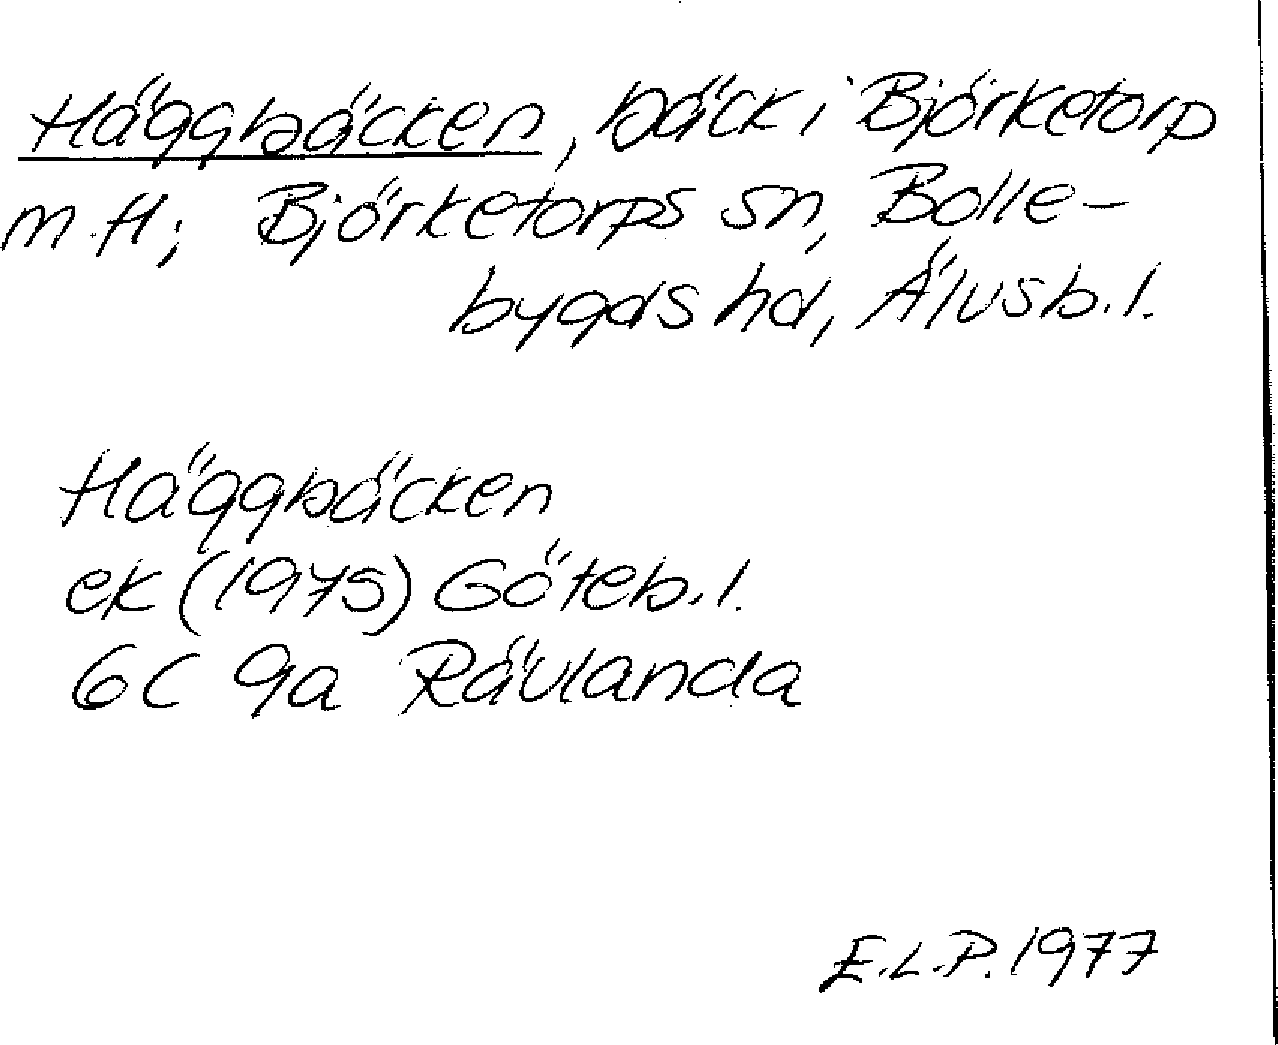 Häggbäcken, bäck i Björketorp
m.fl; Björketorps sn, Bolle-
bygds hd, Älvsb.l.
Häggbäcken
ek (1975) Göteb.l.
6C 9a Rävlanda
E.L.P. 1977